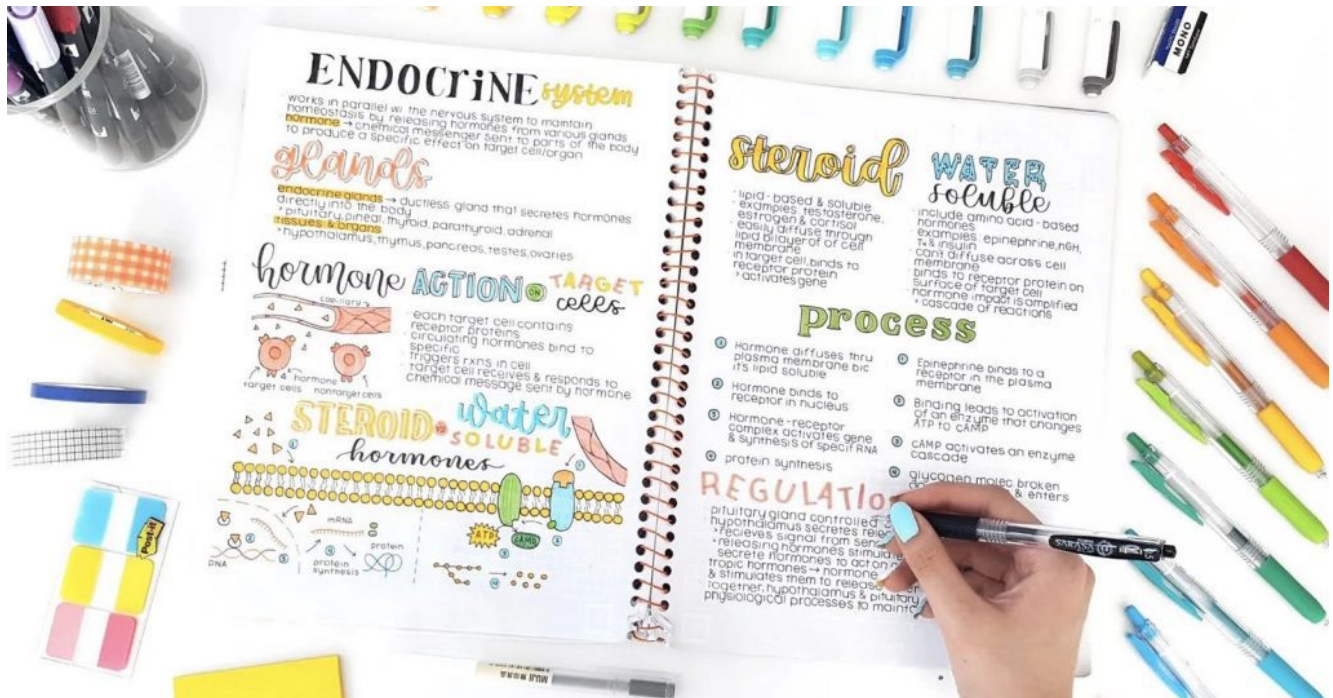 ENDOCRINE system
works in parallel w/ the nervous system to maintain
homeostasis by releasing hormones from various glands
hormone → chemical messenger sent to parts of the body
to produce a specific effect on target cell/organ
glands
endocrine glands → ductless gland that secretes hormones
directly into the body
pituitary, pineal, thyroid, parathyroid, adrenal
tissues & organs
hypothalamus, thymus, pancreas, testes, ovaries
hormone ACTION ON TARGET
cells
capillary
target cells
hormone
nontarget cells
· each target cell contains
receptor proteins
· circulating hormones bind to
specific
· triggers rxns in cell
· target cell receives & responds to
chemical message sent by hormone
STEROID vs water
SOLUBLE
hormones
1
1
2
3
DNA
mRNA
4
protein
synthesis
protein
ATP
cAMP
3
2
4
steroid
· lipid-based & soluble
· examples: testosterone,
estrogen & cortisol
· easily diffuse through
lipid bilayer of cell
membrane
· in target cell, binds to
receptor protein
activates gene
WATER
soluble
· include amino acid-based
hormones
· examples: epinephrine, hGH,
T4 & insulin
· can't diffuse across cell
membrane
· binds to receptor protein on
surface of target cell
· hormone impact is amplified
cascade of reactions
process
1 Hormone diffuses thru
plasma membrane b/c
it's lipid soluble
2 Hormone binds to
receptor in nucleus
3 Hormone-receptor
complex activates gene
& synthesis of specif RNA
4 protein synthesis
1 Epinephrine binds to a
receptor in the plasma
membrane
2 Binding leads to activation
of an enzyme that changes
ATP to cAMP
3 cAMP activates an enzyme
cascade
4 glycogen molec broken
& enters
REGULATIO
pituitary gland controlled
hypothalamus secretes rele
recieves signal from
releasing hormones stimula
secrete hormones to action
tropic hormones → hormone
& stimulates them to release
together, hypothalamus & pituitary
physiological processes to maint
Post-it
MONO
SARASA
MUJI 無印良品